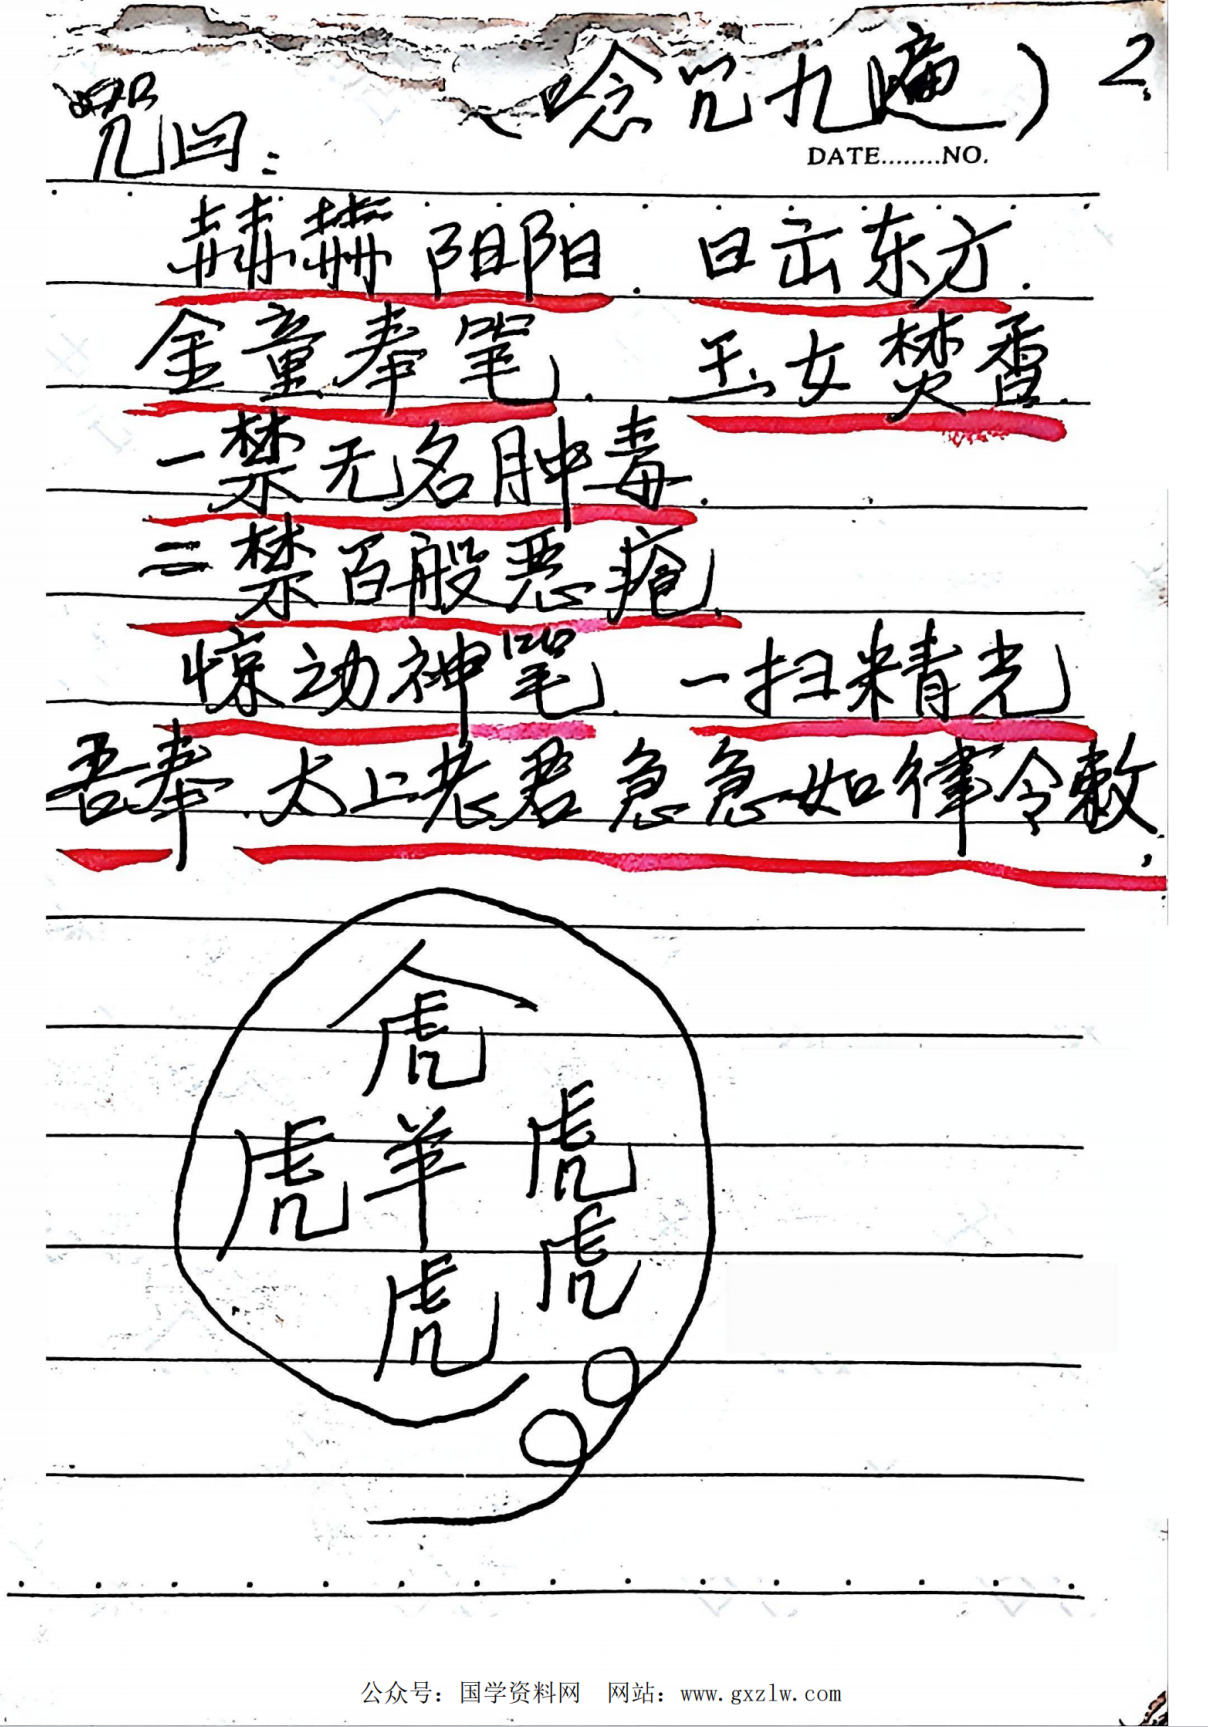 咒曰： （念咒九遍） 2
DATE........NO.
赫赫阴阳．日出东方．
金童奉笔．玉女焚香．
一禁无名肿毒．
二禁百般恶疮．
惊动神笔．一扫精光
吾奉．太上老君急急如律令敕，
虎
虎 羊 虎
虎
虎
公众号：国学资料网 网站：www.gxzlw.com